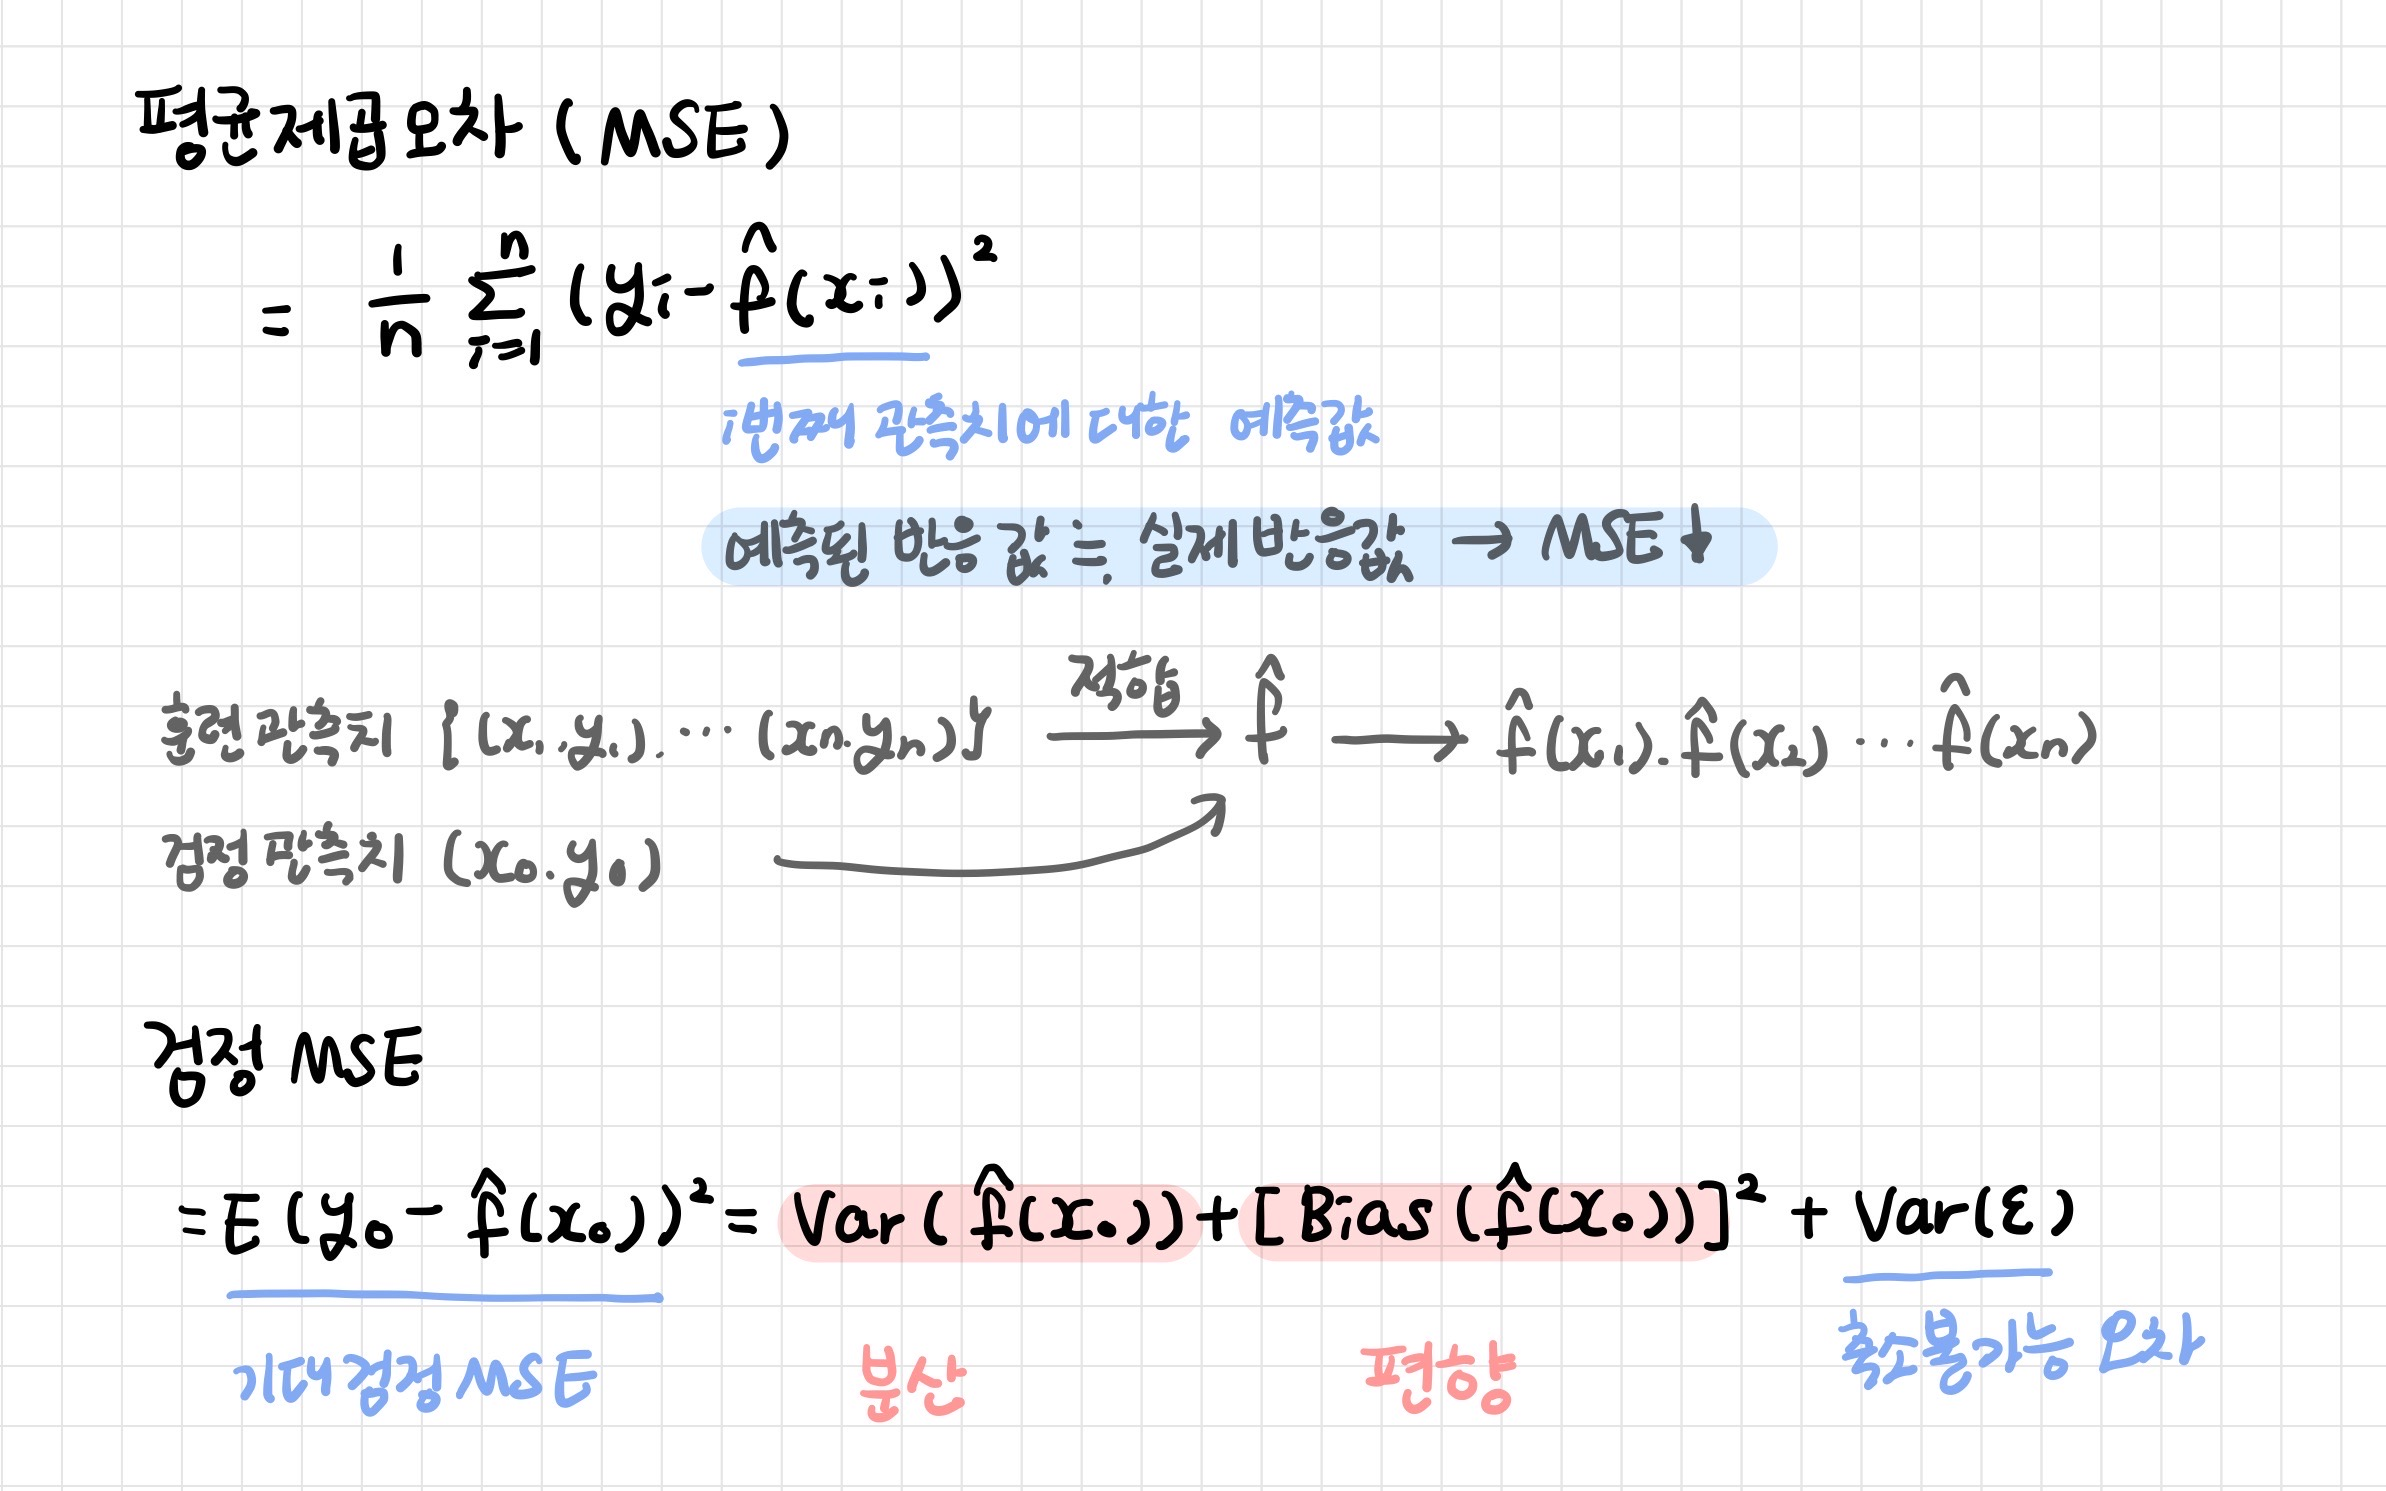 평균제곱오차 (MSE)
= 1/n Σ_{i=1}^{n} (y_i - f̂(x_i))²
i번째 관측치에 대한 예측값
예측된 반응 값 ≒ 실제 반응값 → MSE↓
적합
훈련 관측치 {(x₁,y₁), ⋯ (xₙ,yₙ)} → f̂ → f̂(x₁), f̂(x₂) ⋯ f̂(xₙ)
검정 관측치 (x₀,y₀)
검정 MSE
= E(y₀ - f̂(x₀))² = Var(f̂(x₀)) + [Bias(f̂(x₀))]² + Var(ε)
기대 검정 MSE 분산 편향 축소불가능 오차